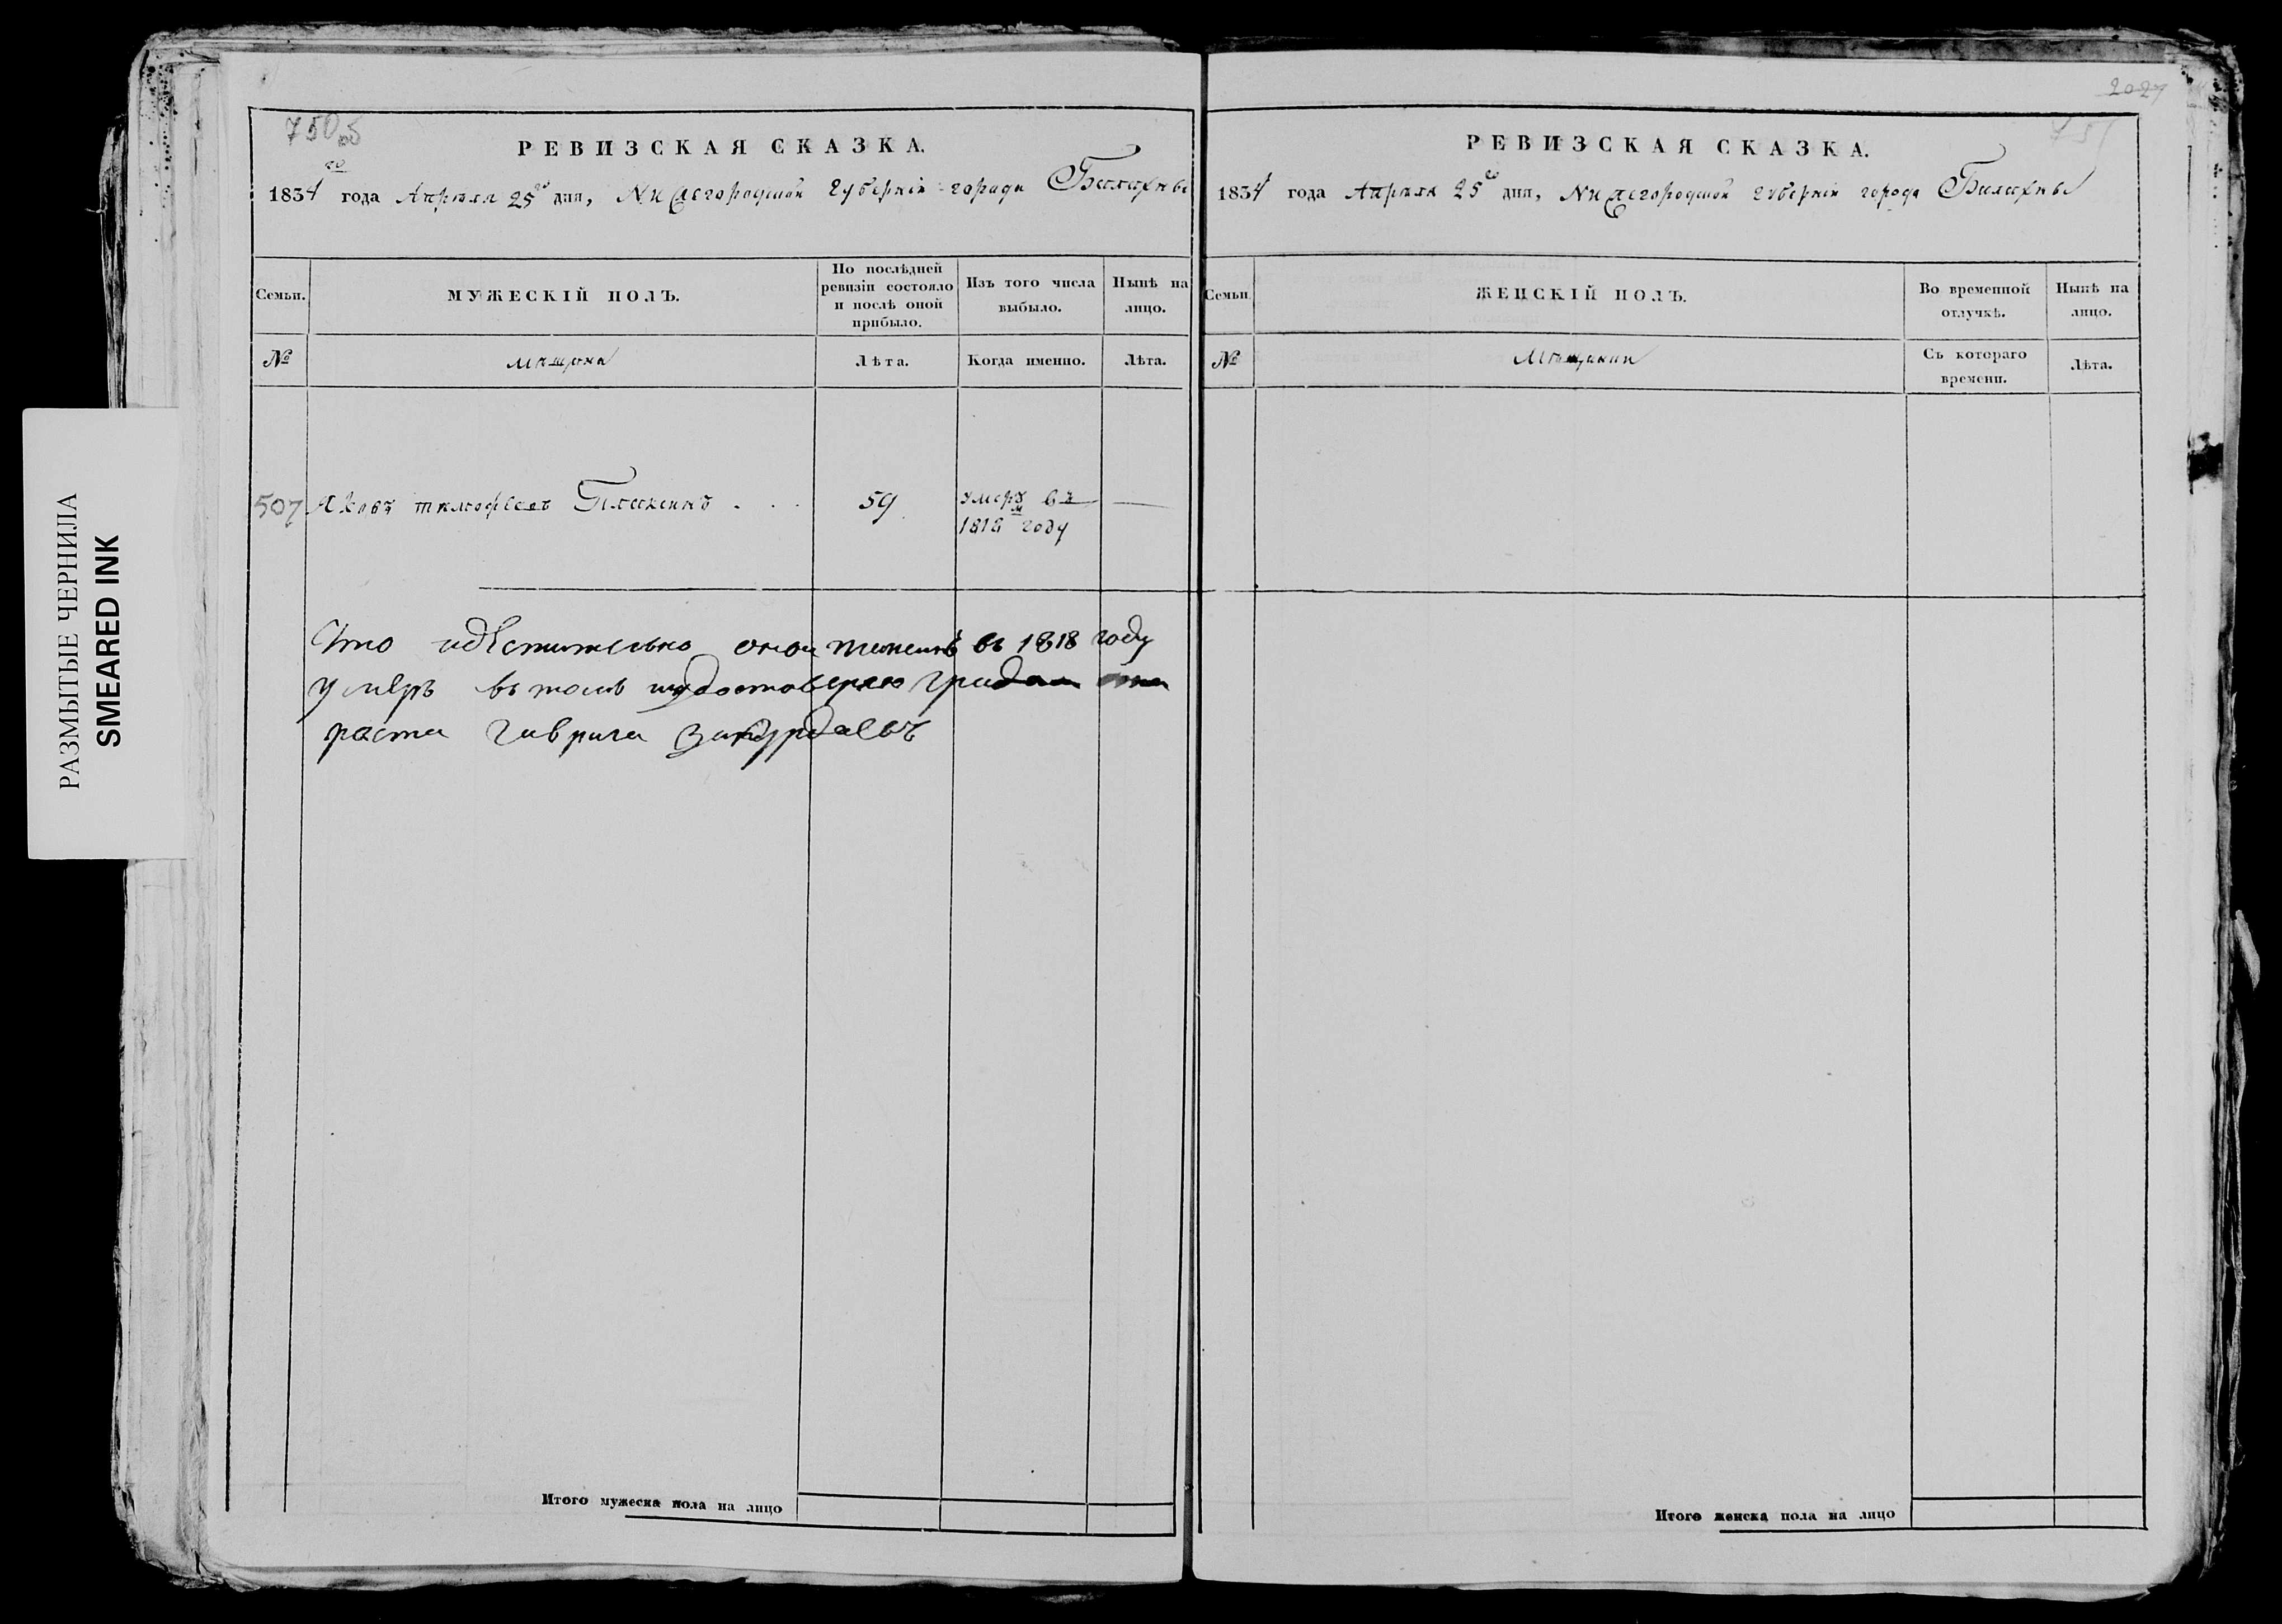 РАЗМЫТЫЕ ЧЕРНИЛА
SMEARED INK
750 об
РЕВИЗСКАЯ СКАЗКА.
1834го года Апреля 25го дня, Нижегородской губернии города Балахны
Семьи.
МУЖЕСКІЙ ПОЛЪ.
По послѣдней
ревизіи состояло
и послѣ оной
прибыло.
Изъ того числа
выбыло.
Нынѣ на
лицо.
№
мещане
Лѣта.
Когда именно.
Лѣта.
507 Яковъ тимофеевъ Плехинъ . . .
59
умеръ въ
1818м году
—
Что
оной в 1818 году
умеръ въ томъ
роста гаврила
Итого мужеска пола на лицо
2027
751
РЕВИЗСКАЯ СКАЗКА.
1834 года Апреля 25го дня, Нижегородской губерніи города Балахны
Семьи.
ЖЕНСКІЙ ПОЛЪ.
Во временной
отлучкѣ.
Нынѣ на
лицо.
№
Мещанки
Съ котораго
времени.
Лѣта.
Итого женска пола на лицо